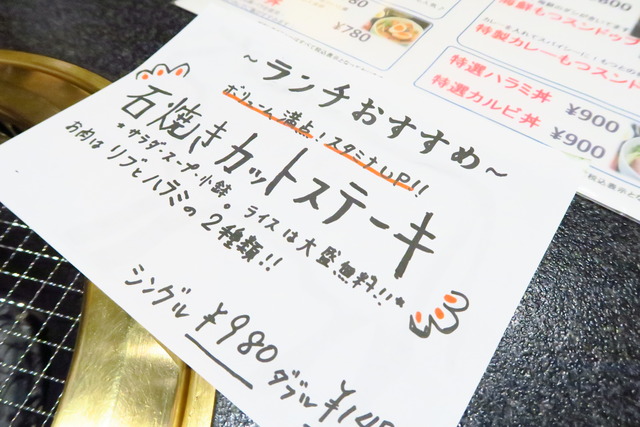 ~ランチおすすめ~
ボリューム満点!スタミナUP!!
石焼きカットステーキ
*サラダ・スープ・小鉢。ライスは大盛無料!!*
お肉は リブとハラミの2種類!!
シングル ¥980
ダブル ¥14
¥780
特製カレーもつスンド
特選ハラミ丼 ¥900
特選カルビ丼 ¥900